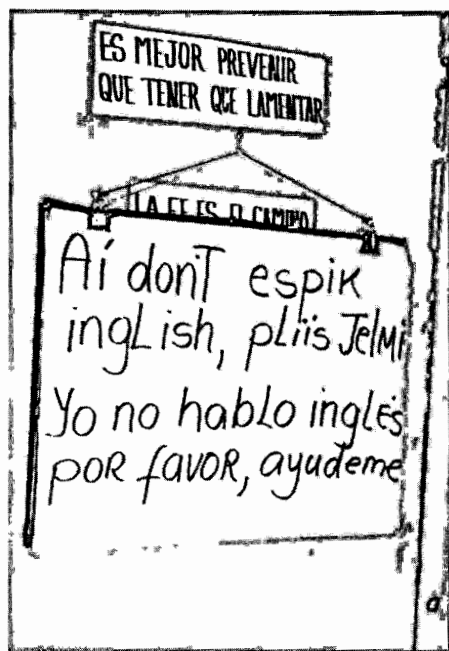 ES MEJOR PREVENIR
QUE TENER QUE LAMENTAR
LA FE ES EL CAMINO
Aí don't espik
inglish, pliis Jelmi
Yo no hablo inglés
por favor, ayudeme